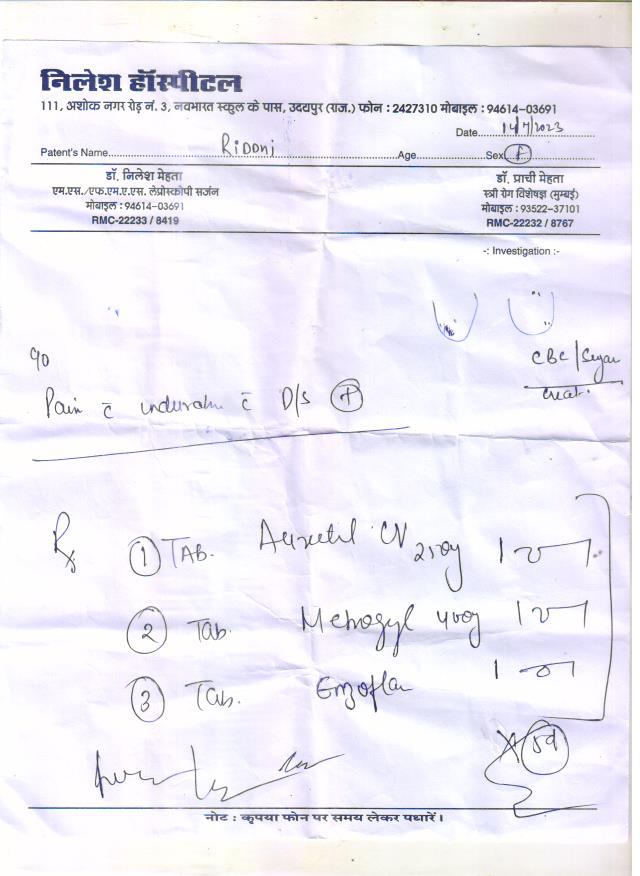 निलेश हॉस्पीटल
111, अशोक नगर रोड़ नं. 3, नवभारत स्कुल के पास, उदयपुर (राज.) फोन : 2427310 मोबाइल : 94614-03691
Date 14/7/2023
Patent's Name RIDDHI Age Sex F
डॉ. निलेश मेहता
एम.एस./एफ.एम.ए.एस. लेप्रोस्कोपी सर्जन
मोबाइल : 94614-03691
RMC-22233 / 8419
डॉ. प्राची मेहता
स्त्री रोग विशेषज्ञ (मुम्बई)
मोबाइल : 93522-37101
RMC-22232 / 8767
-: Investigation :-
CBC/Sugar
creat.
c/o
Pain c̄ c̄ D/s +
Rx
1 TAB. CV
2 Tab. Metrogyl 400g
3 Tab. Enzoflam
x 5d
नोट : कृपया फोन पर समय लेकर पधारें।